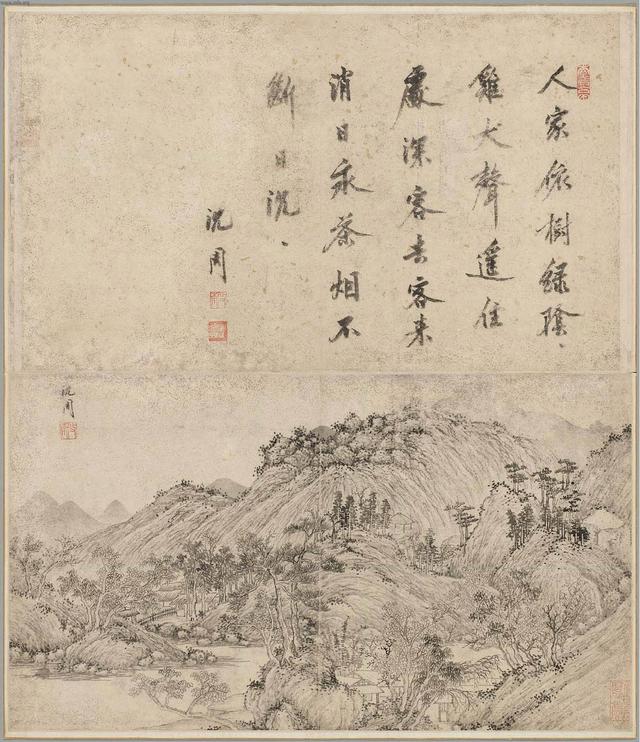 人家依樹綠陰、
雞犬聲遙住
處深客去客來
消日永茶烟不
斷日沉、
沈周
沈周